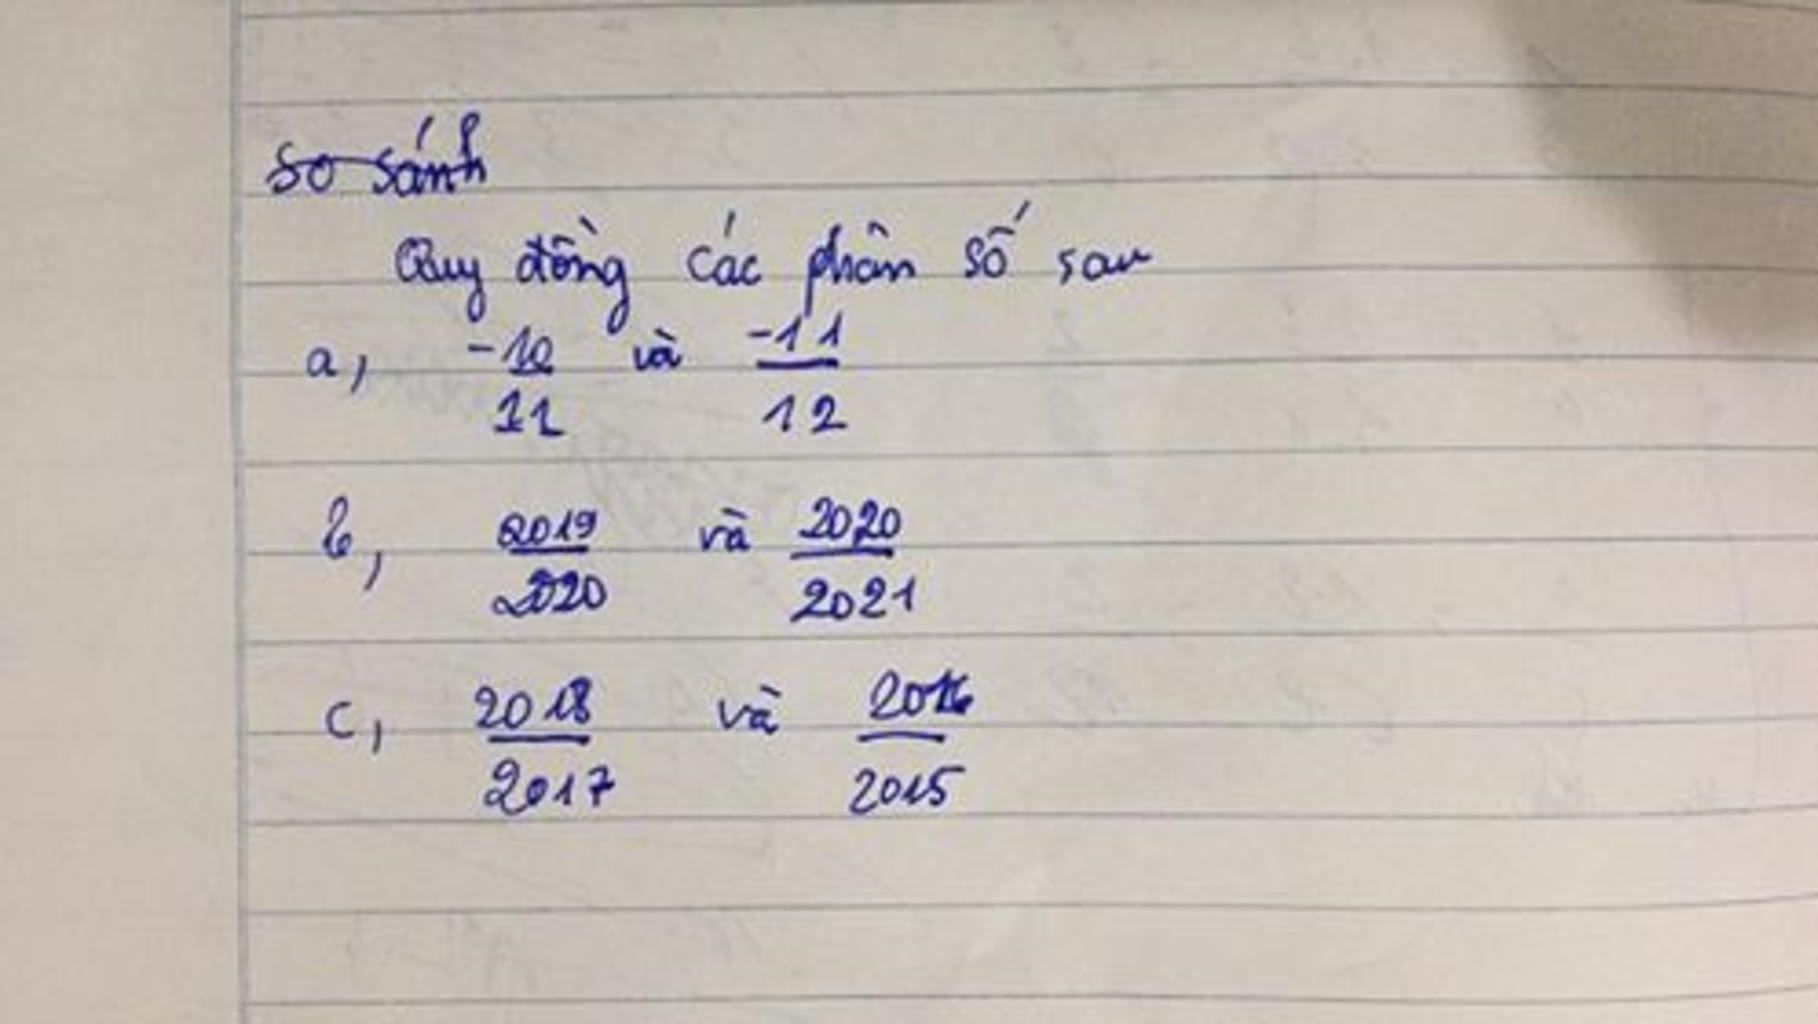 So sánh
Quy đồng các phân số sau
a, -10/11 và -11/12
b, 2019/2020 và 2020/2021
c, 2018/2017 và 2016/2015